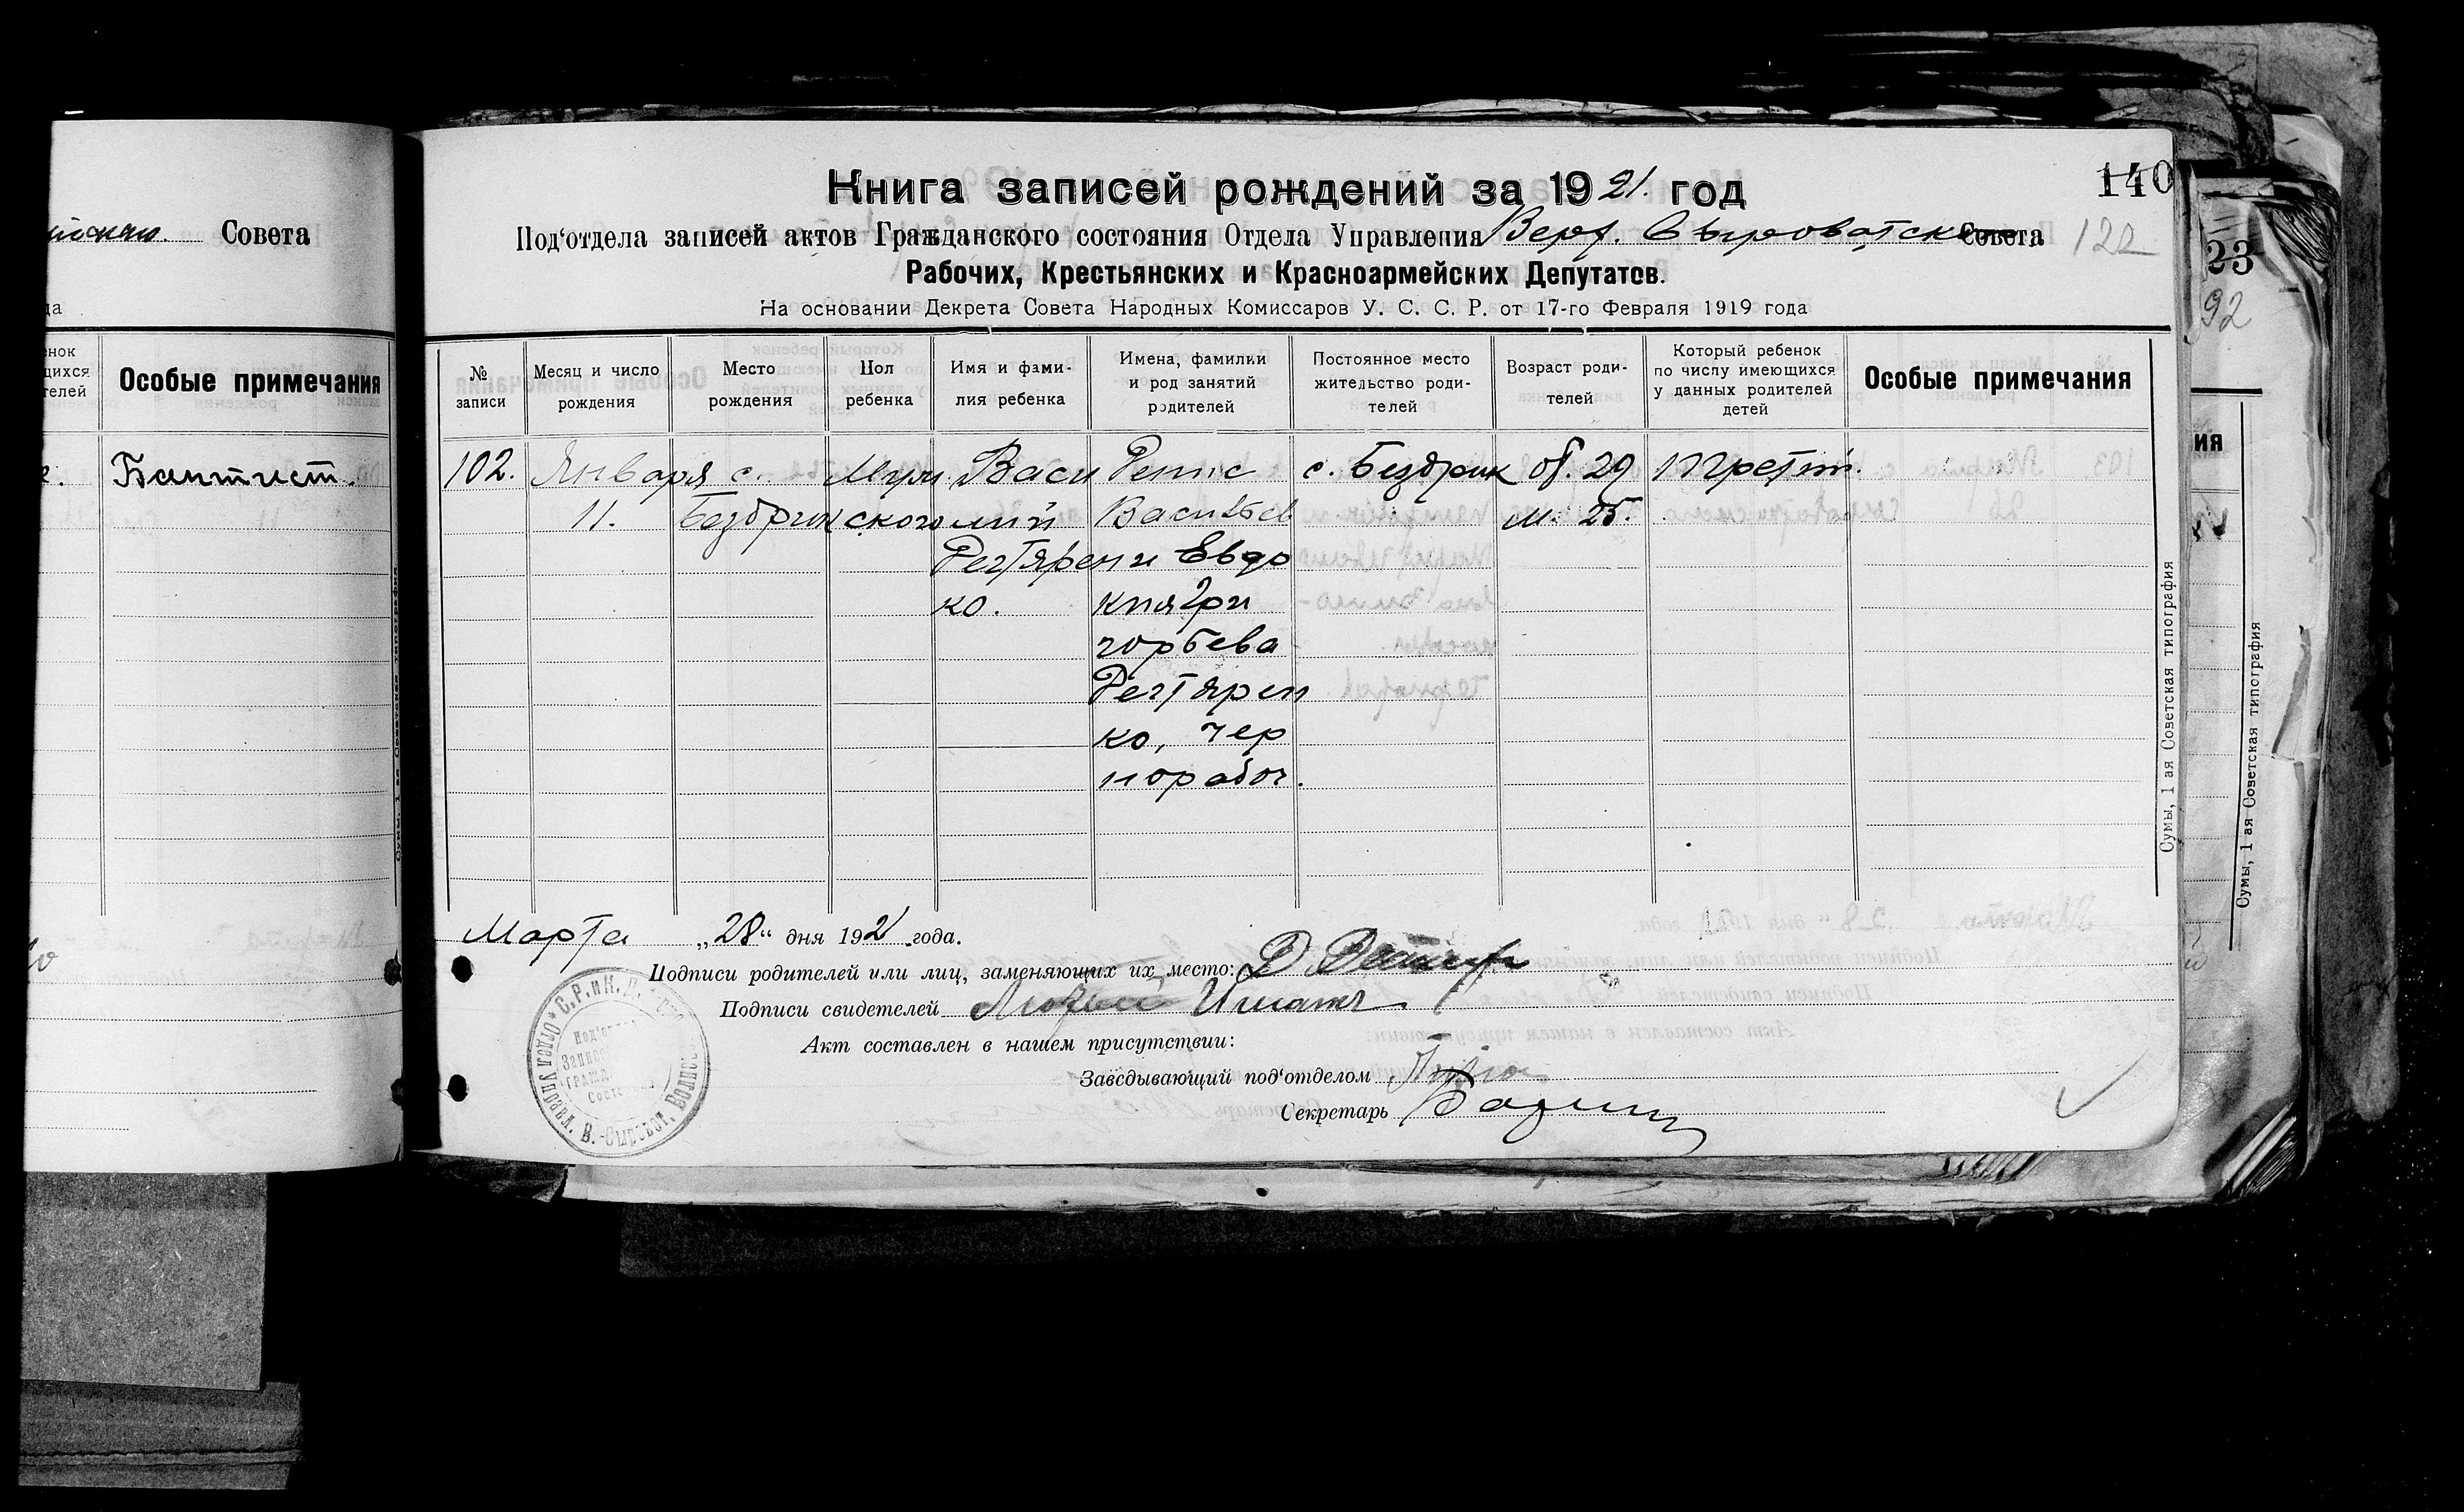 Совета
да
енок
щихся
телей
Особые примечания
Баптист.
Книга записей рождений за 1921. год
140
Под'отдела записей актов Гражданского состояния Отдела Управления Верх. Сыроватск Совета
122
Рабочих, Крестьянских и Красноармейских Депутатов.
На основании Декрета Совета Народных Комиссаров У. С. С. Р. от 17-го Февраля 1919 года
№ записи
Месяц и число рождения
Место рождения
Пол ребенка
Имя и фами-
лия ребенка
Имена, фамилии
и род занятий
родителей
Постоянное место
жительство роди-
телей
Возраст роди-
телей
Который ребенок
по числу имеющихся
у данных родителей
детей
Особые примечания
102.
Января
11.
с.
Бездрик
Муж
ского
Васи
лий
Дегтярен
ко.
Денис
Васильев
и Евдо
кия Гри
горьева
Дегтярен
ко, чер
норабоч.
с. Бездрик
от. 29
м. 25.
Третий.
Марта „28“ дня 1921 года.
Подписи родителей или лиц, заменяющих их место: Д
Подписи свидетелей
Акт составлен в нашем присутствии:
Заведывающий под'отделом
Секретарь
Под'отдел
Записей
Гражд.
Сост
В.-Сыроват. Волис
С.Р.иК.Д.
Отдел Управл.
Сумы, 1 ая Советская типография
23
92
ия
Сумы, 1 ая Советская типография